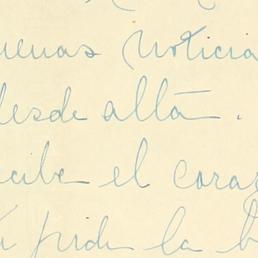 uenas noticia
desde allá.
cibe el coraz
pide la b